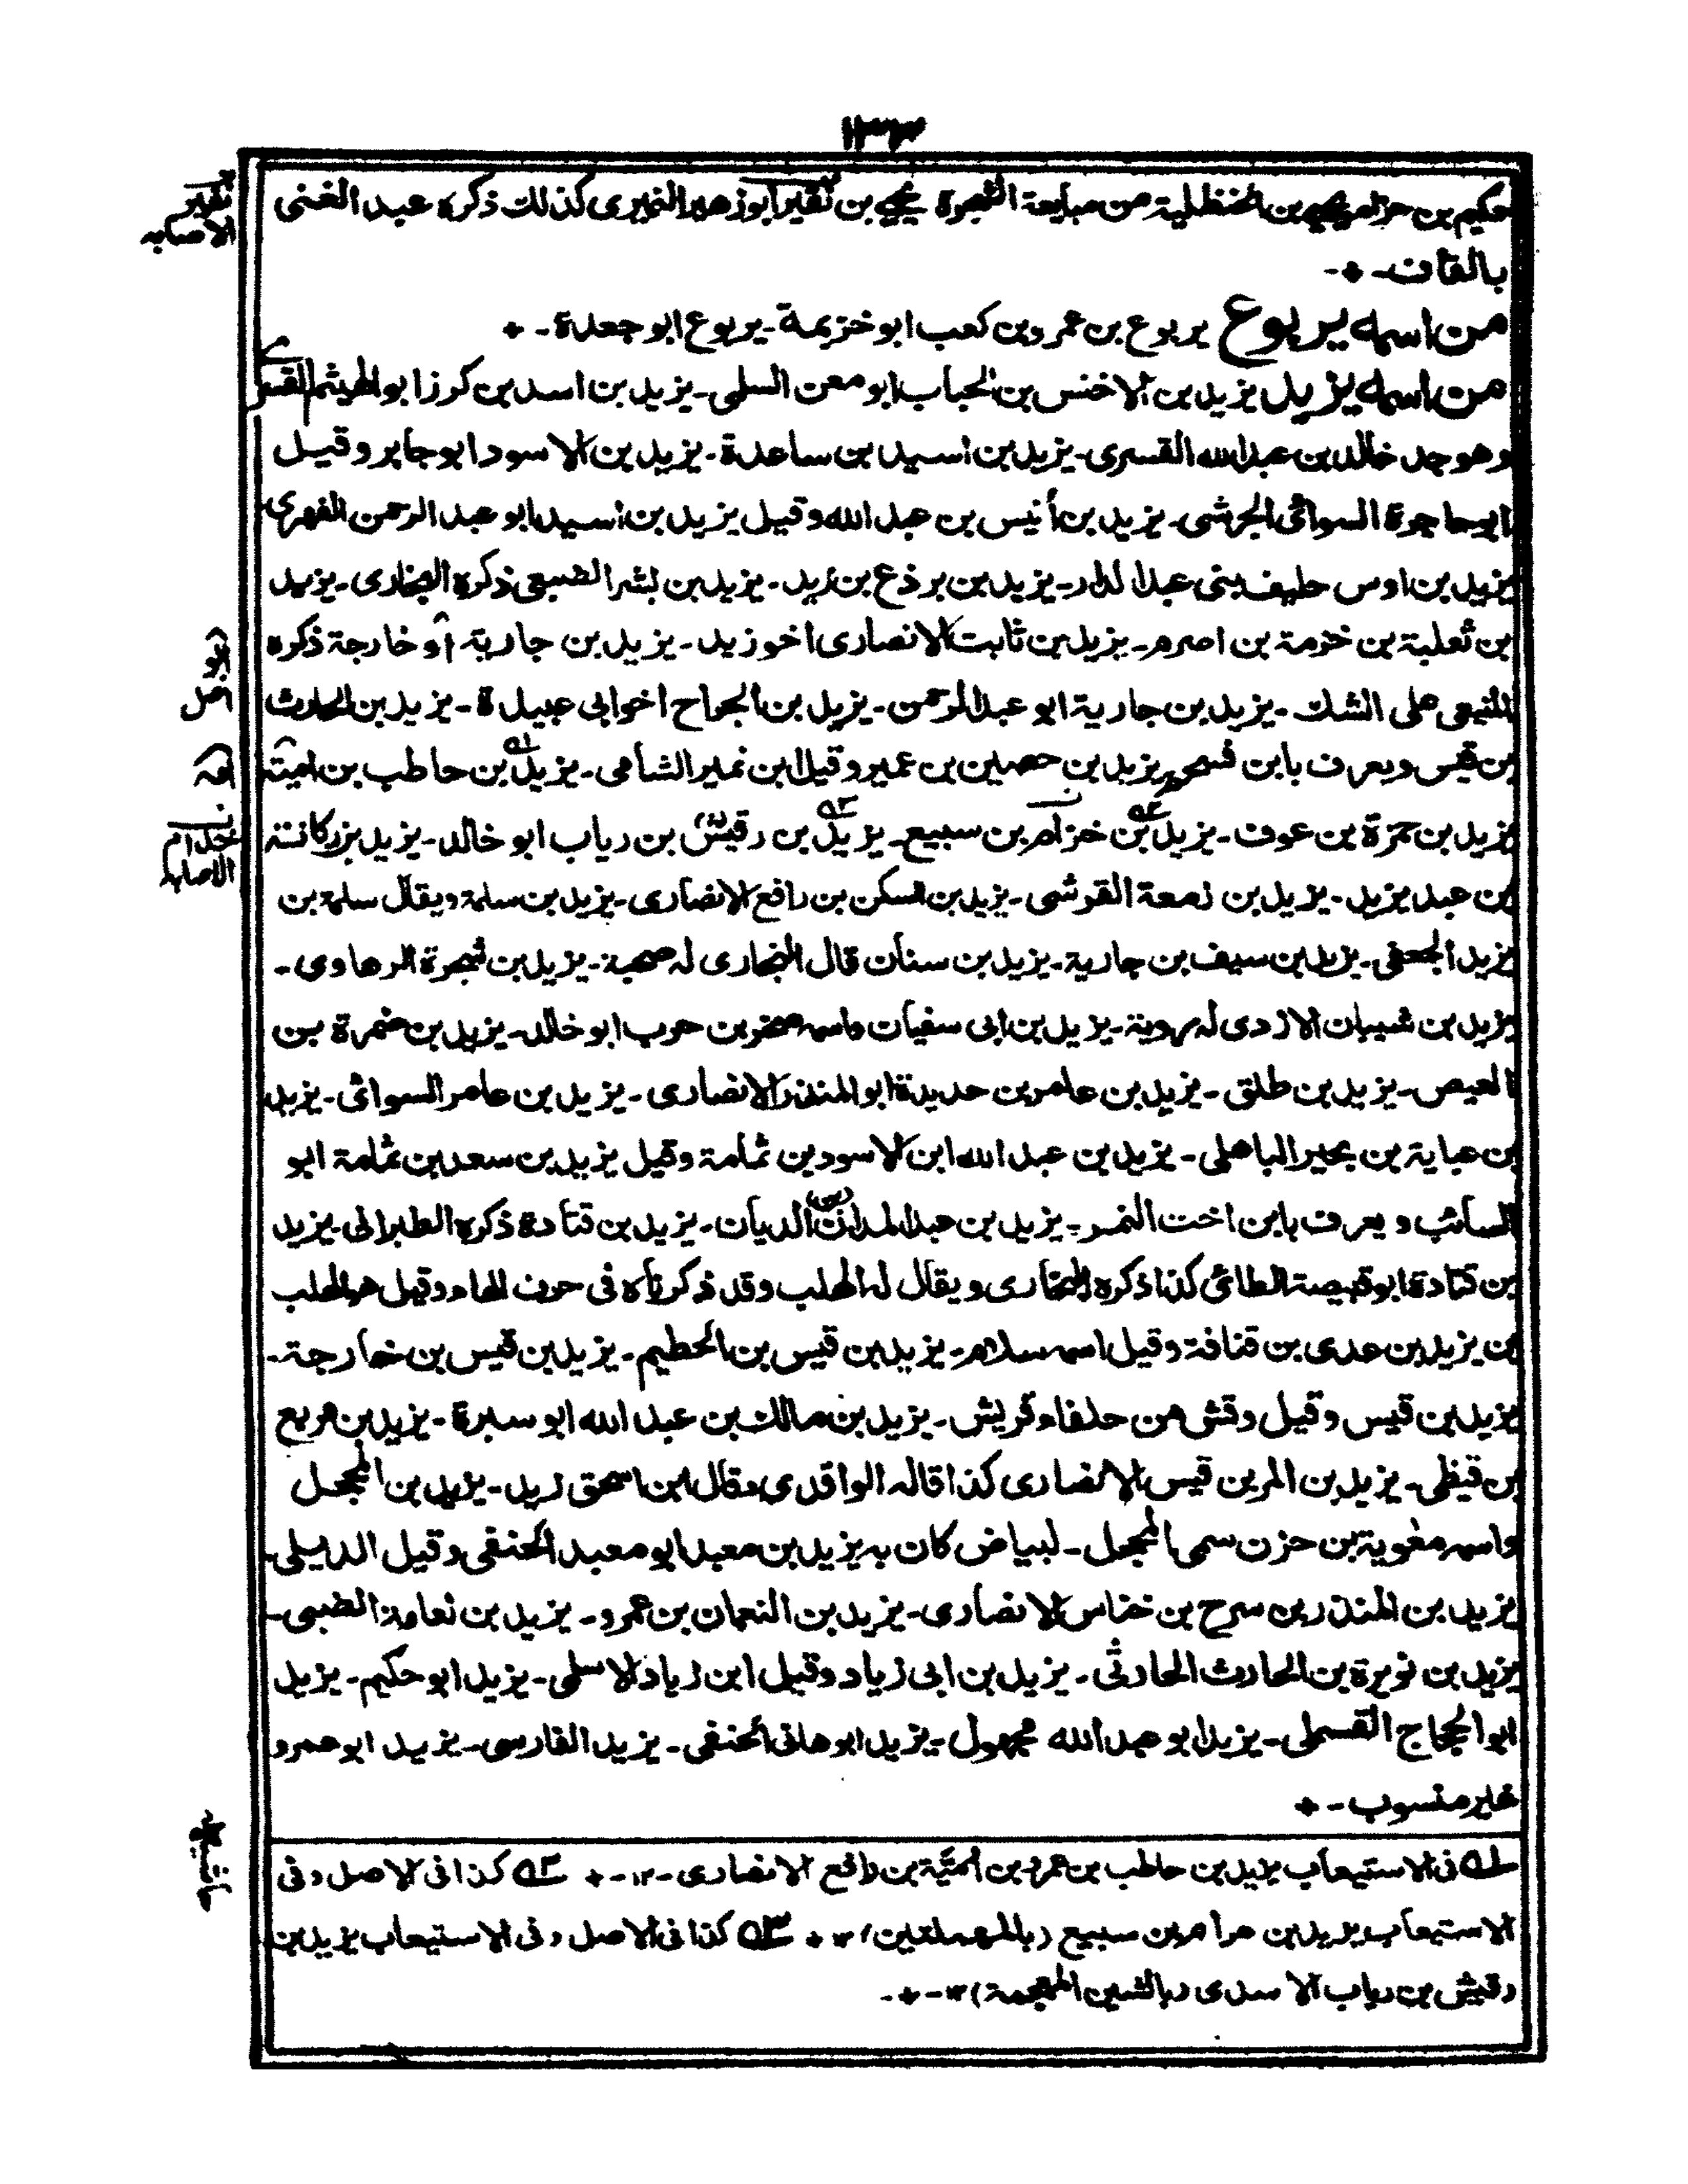 ١٣٣
حكيم بن حزام يحيى بن الحنظلية من مبايعة الشجرة يحيى بن نقير ابو زهير النميرى كذلك ذكره عبد الغنى
بالقاف - + -
من اسمه يربوع يربوع بن عمرو بن كعب ابو خزيمة - يربوع ابو جعدة - +
من اسمه يزيد يزيد بن الاخنس بن الحباب ابو معن السلمى - يزيد بن اسد بن كرز ابو الهيثم القسرى
وهو جد خالد بن عبد الله القسرى - يزيد بن اسيد بن ساعدة - يزيد بن الاسود ابو جابر وقيل
ابو حاجرة السوائى الجرشى - يزيد بن أنيس بن عبد الله وقيل يزيد بن اسيد ابو عبد الرحمن الفهرى
يزيد بن اوس حليف بنى عبد الدار - يزيد بن برذع بن زيد - يزيد بن بشر الضبعى ذكره البخارى - يزيد
بن ثعلبة بن خزمة بن اصرم - يزيد بن ثابت الانصارى اخو زيد - يزيد بن جارية أو خارجة ذكره
المنيعى على الشك - يزيد بن جارية ابو عبد الرحمن - يزيد بن الجراح اخو ابى عبيدة - يزيد بن الحارث
بن قيس ويعرف بابن فسحم يزيد بن حصين بن عمير وقيل ابن نمير الشامى - يزيد بن حاطب بن امية
يزيد بن حمزة بن عوف - يزيد بن خزام بن سبيع - يزيد بن رقيش بن رياب ابو خالد - يزيد بن ركانة
بن عبد يزيد - يزيد بن زمعة القرشى - يزيد بن السكن بن رافع الانصارى - يزيد بن سلمة ويقال سلمة بن
يزيد الجعفى - يزيد بن سيف بن جارية - يزيد بن سنان قال البخارى له صحبة - يزيد بن شجرة الرهاوى -
يزيد بن شيبان الازدى له رؤية - يزيد بن ابى سفيان واسمه صخر بن حرب ابو خالد - يزيد بن ضمرة بن
العيص - يزيد بن طلق - يزيد بن عامر بن حديدة ابو المنذر الانصارى - يزيد بن عامر السوائى - يزيد
بن عباية بن بحير الباهلى - يزيد بن عبد الله ابن الاسود بن ثمامة وقيل يزيد بن سعد بن ثمامة ابو
السائب ويعرف بابن اخت النمر - يزيد بن عبد المدان (بن) الديان - يزيد بن قتادة ذكره الطبرانى - يزيد
بن قتادة ابو قبيصة الطائى كذا ذكره البخارى ويقال له الهلب وقد ذكرناه فى حرف الهاء وقيل هو الهلب
بن يزيد بن عدى بن قنافة وقيل اسمه سلام - يزيد بن قيس بن الحطيم - يزيد بن قيس بن خارجة -
يزيد بن قيس وقيل وقش من حلفاء قريش - يزيد بن مالك بن عبد الله ابو سبرة - يزيد بن مربع
بن قيظى - يزيد بن المر بن قيس الانصارى كذا قاله الواقدى وقال ابن اسحق زيد - يزيد بن المحجل
واسمه معوية بن حزن سمى المحجل - لبياض كان به يزيد بن معبد ابو معبد الحنفى وقيل الديلى -
يزيد بن المنذر بن سرح بن خناس الانصارى - يزيد بن النعمان بن عمرو - يزيد بن نعامة الضبى -
يزيد بن نويرة بن الحارث الحارثى - يزيد بن ابى زياد وقيل ابن زياد الاسلمى - يزيد ابو حكيم - يزيد
ابو الحجاج القسملى - يزيد ابو عبد الله مجهول - يزيد ابو هانى الحنفى - يزيد الفارسى - يزيد ابو عمرو
غير منسوب - +
نفير
الاصابه
اصل
امية
الاصابه
حاشيه
له فى الاستيعاب يزيد بن حاطب بن عمرو بن امية بن رافع الانصارى - ١٢ - + ٢ه كذا فى الاصل وفى
الاستيعاب يزيد بن حرام بن سبيع (بالمهملتين) ١٢ + ٣ه كذا فى الاصل وفى الاستيعاب يزيد بن
رقيش بن رياب الاسدى (بالشين المعجمة) ١٢ - + -